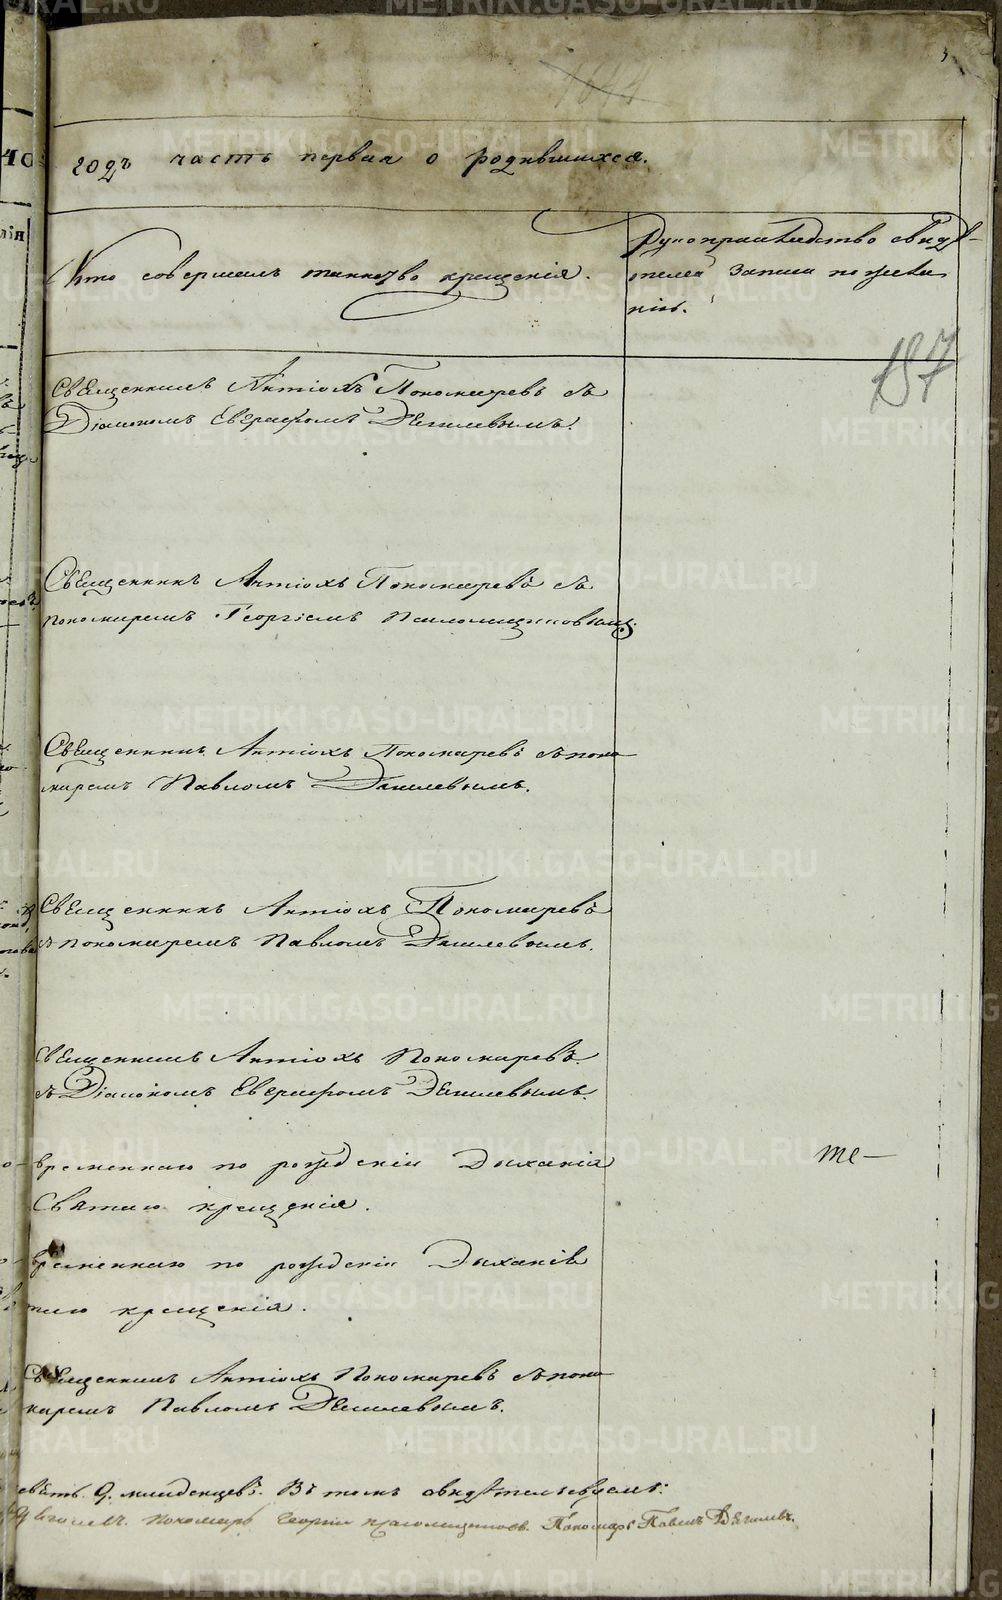 годъ часть первая о родившихся.
Кто совершалъ таинство крещенія.
Рукоприкладство свидѣ-
телей записи по жела
нію.
187
Священникъ Антіохъ Пономаревъ съ
Діакономъ Евграфомъ Дягилевымъ.
Священникъ Антіохъ Пономаревъ съ
пономаремъ Георгіемъ Паломщиковымъ.
Священникъ Антіохъ Пономаревъ съ поно
маремъ Павломъ Дягилевымъ.
Священникъ Антіохъ Пономаревъ
съ пономаремъ Павломъ Дягилевымъ.
Священникъ Антіохъ Пономаревъ
съ Діакономъ Евграфомъ Дягилевымъ.
временнаго по рожденіи Дыханія
те—
Святаго крещенія.
временнаго по рожденіи Дыханія
таго крещенія.
Священникъ Антіохъ Пономаревъ съ поно
маремъ Павломъ Дягилевымъ.
9. младенцевъ. Въ томъ свидѣтельствуемъ:
Пономарь Георгій Пономарь Павелъ Дягилевъ.
METRIKI.GASO-URAL.RU